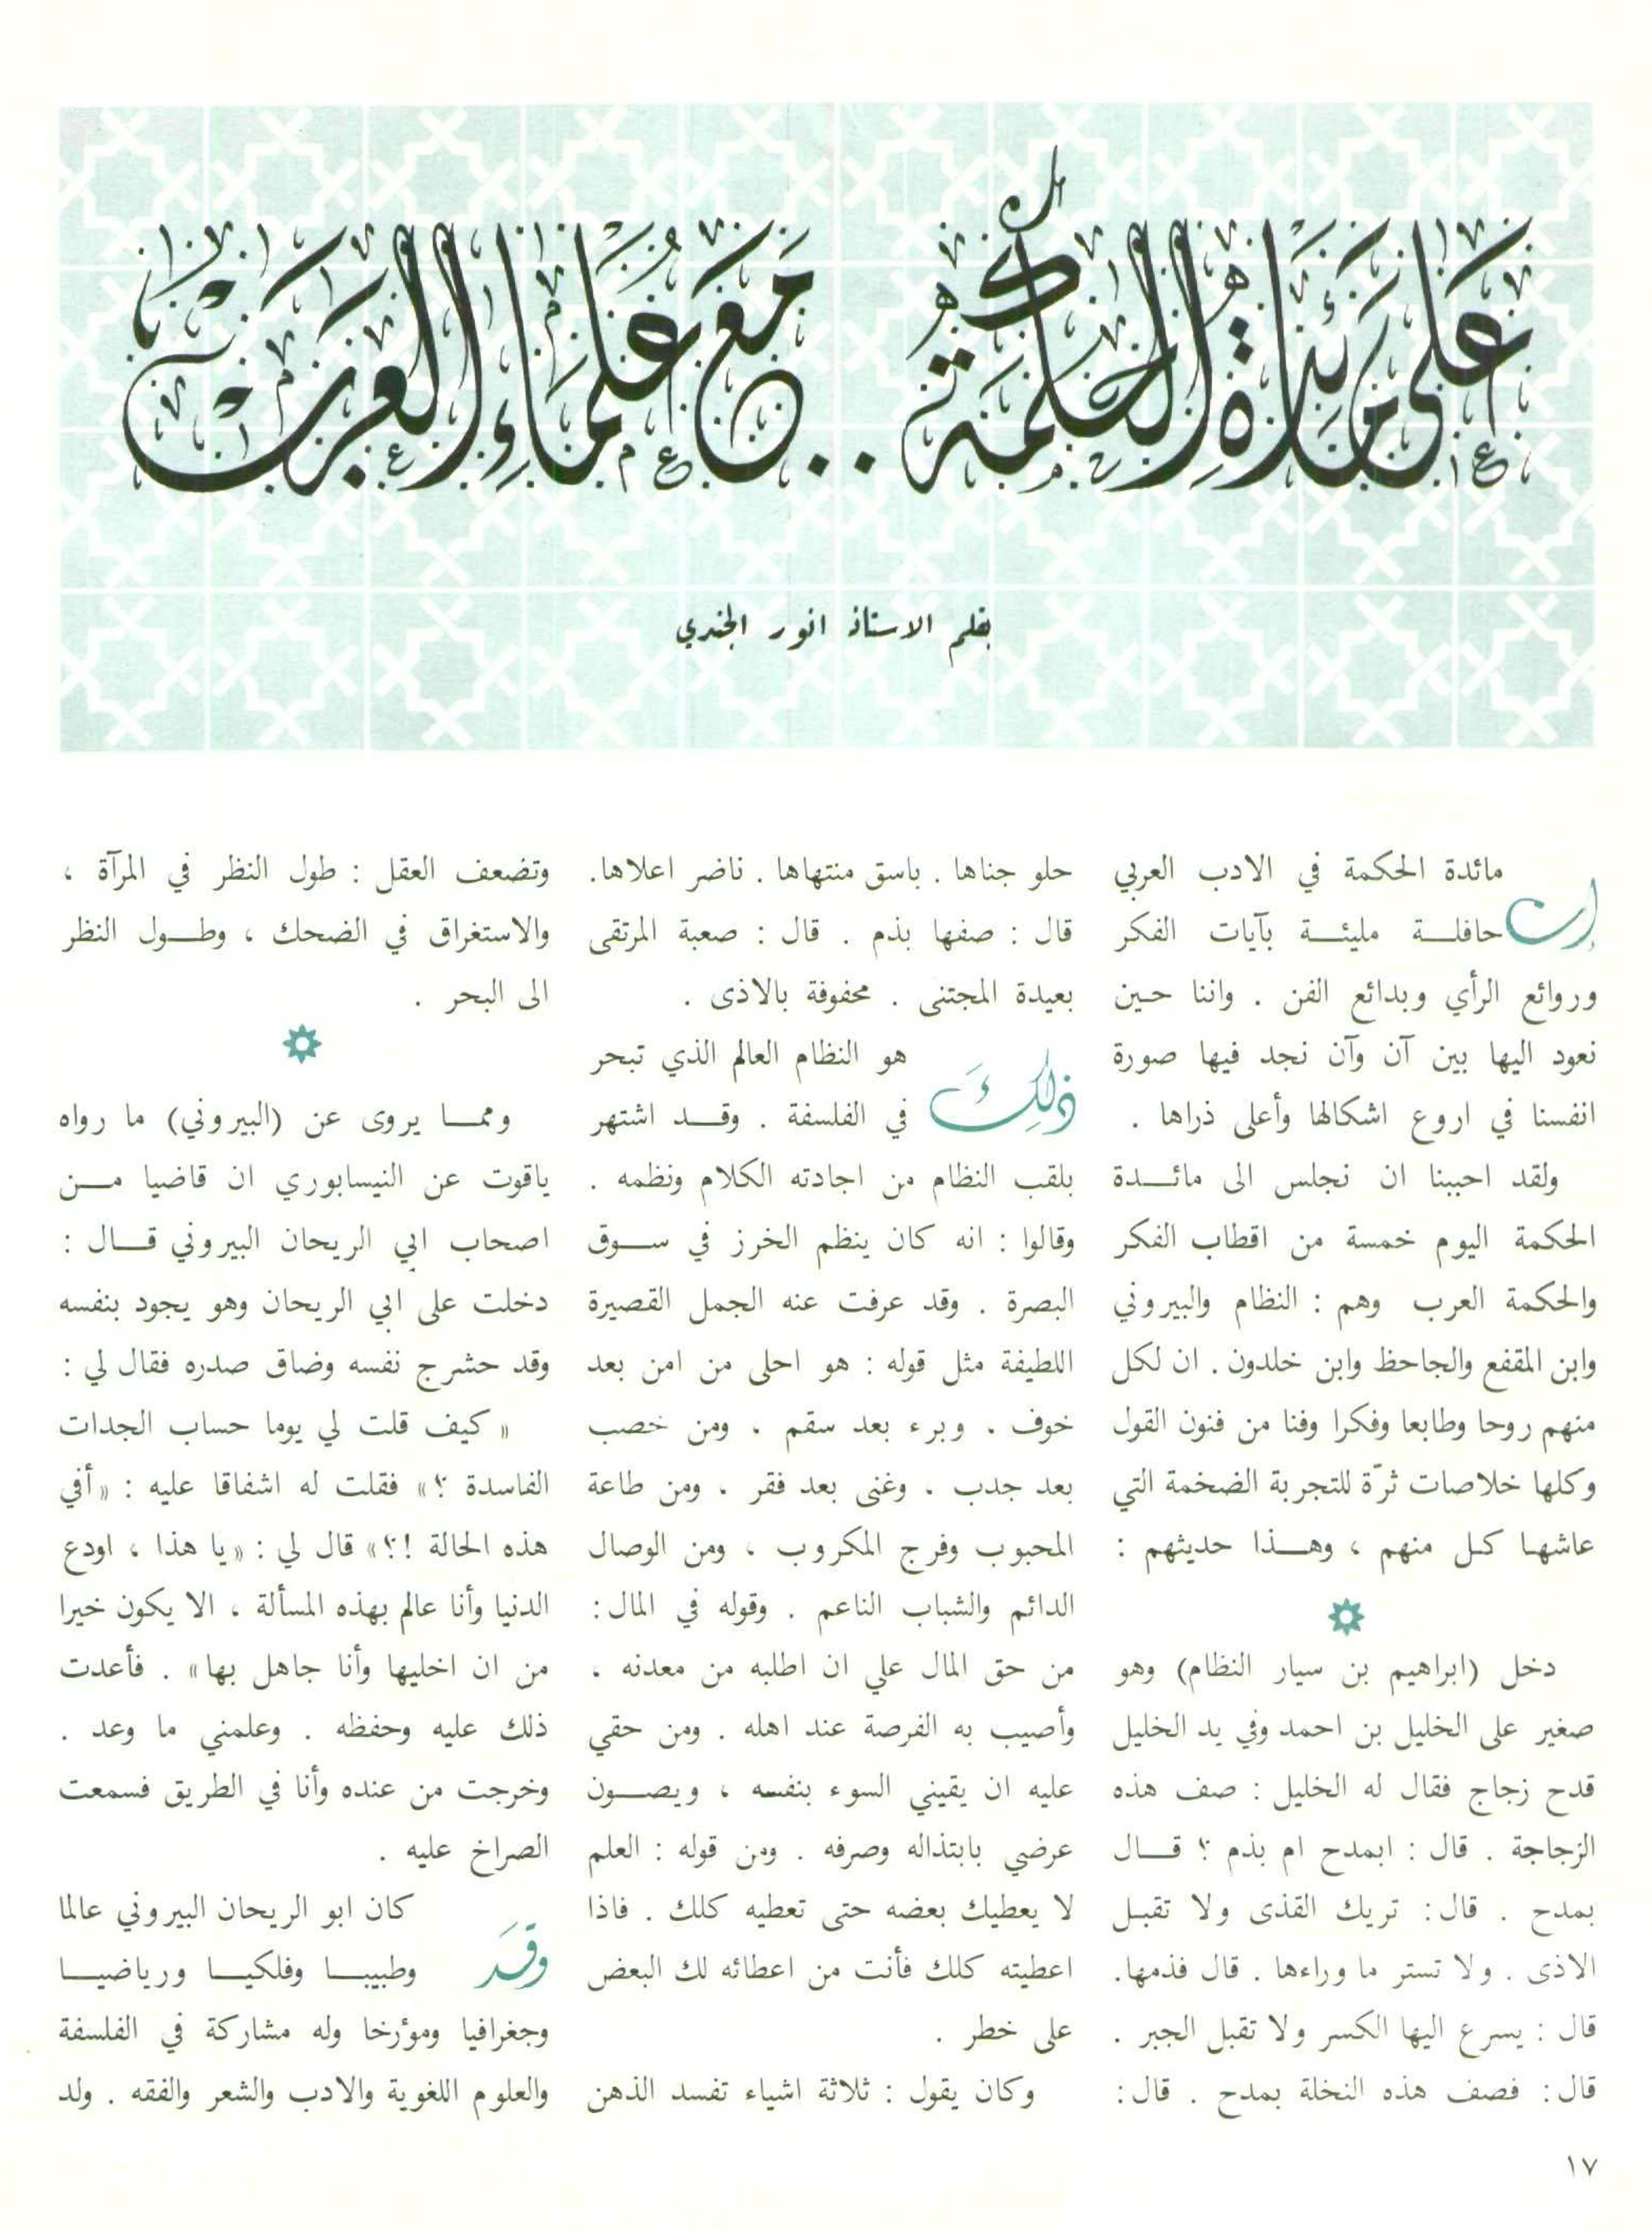 على مائدة الحكمة .. مع علماء العرب
بقلم الاستاذ انور الجندي
إن مائدة الحكمة في الادب العربي
حافلة مليئة بآيات الفكر
وروائع الرأي وبدائع الفن . واننا حين
نعود اليها بين آن وآن نجد فيها صورة
انفسنا في اروع اشكالها وأعلى ذراها .
ولقد احببنا ان نجلس الى مائدة
الحكمة اليوم خمسة من اقطاب الفكر
والحكمة العرب وهم : النظام والبيروني
وابن المقفع والجاحظ وابن خلدون . ان لكل
منهم روحا وطابعا وفكرا وفنا من فنون القول
وكلها خلاصات ثرّة للتجربة الضخمة التي
عاشها كل منهم ، وهذا حديثهم :
دخل (ابراهيم بن سيار النظام) وهو
صغير على الخليل بن احمد وفي يد الخليل
قدح زجاج فقال له الخليل : صف هذه
الزجاجة . قال : ابمدح ام بذم ؟ قال
بمدح . قال: تريك القذى ولا تقبل
الاذى . ولا تستر ما وراءها . قال فذمها.
قال : يسرع اليها الكسر ولا تقبل الجبر .
قال: فصف هذه النخلة بمدح . قال:
حلو جناها . باسق منتهاها . ناضر اعلاها.
قال : صفها بذم . قال : صعبة المرتقى
بعيدة المجتنى . محفوفة بالاذى .
ذلِكَ هو النظام العالم الذي تبحر
في الفلسفة . وقد اشتهر
بلقب النظام من اجادته الكلام ونظمه .
وقالوا : انه كان ينظم الخرز في سوق
البصرة . وقد عرفت عنه الجمل القصيرة
اللطيفة مثل قوله : هو احلى من امن بعد
خوف . وبرء بعد سقم . ومن خصب
بعد جدب . وغنى بعد فقر . ومن طاعة
المحبوب وفرج المكروب ، ومن الوصال
الدائم والشباب الناعم . وقوله في المال:
من حق المال علي ان اطلبه من معدنه .
وأصيب به الفرصة عند اهله . ومن حقي
عليه ان يقيني السوء بنفسه ، ويصون
عرضي بابتذاله وصرفه . ومن قوله : العلم
لا يعطيك بعضه حتى تعطيه كلك . فاذا
اعطيته كلك فأنت من اعطائه لك البعض
على خطر .
وكان يقول : ثلاثة اشياء تفسد الذهن
وتضعف العقل : طول النظر في المرآة ،
والاستغراق في الضحك ، وطول النظر
الى البحر .
ومما يروى عن (البيروني) ما رواه
ياقوت عن النيسابوري ان قاضيا من
اصحاب ابي الريحان البيروني قال :
دخلت على ابي الريحان وهو يجود بنفسه
وقد حشرج نفسه وضاق صدره فقال لي :
« كيف قلت لي يوما حساب الجدات
الفاسدة ؟» فقلت له اشفاقا عليه : «أفي
هذه الحالة !؟» قال لي : «يا هذا ، اودع
الدنيا وأنا عالم بهذه المسألة ، الا يكون خيرا
من ان اخليها وأنا جاهل بها» . فأعدت
ذلك عليه وحفظه . وعلمني ما وعد .
وخرجت من عنده وأنا في الطريق فسمعت
الصراخ عليه .
وقَد كان ابو الريحان البيروني عالما
وطبيبا وفلكيا ورياضيا
وجغرافيا ومؤرخا وله مشاركة في الفلسفة
والعلوم اللغوية والادب والشعر والفقه . ولد
١٧